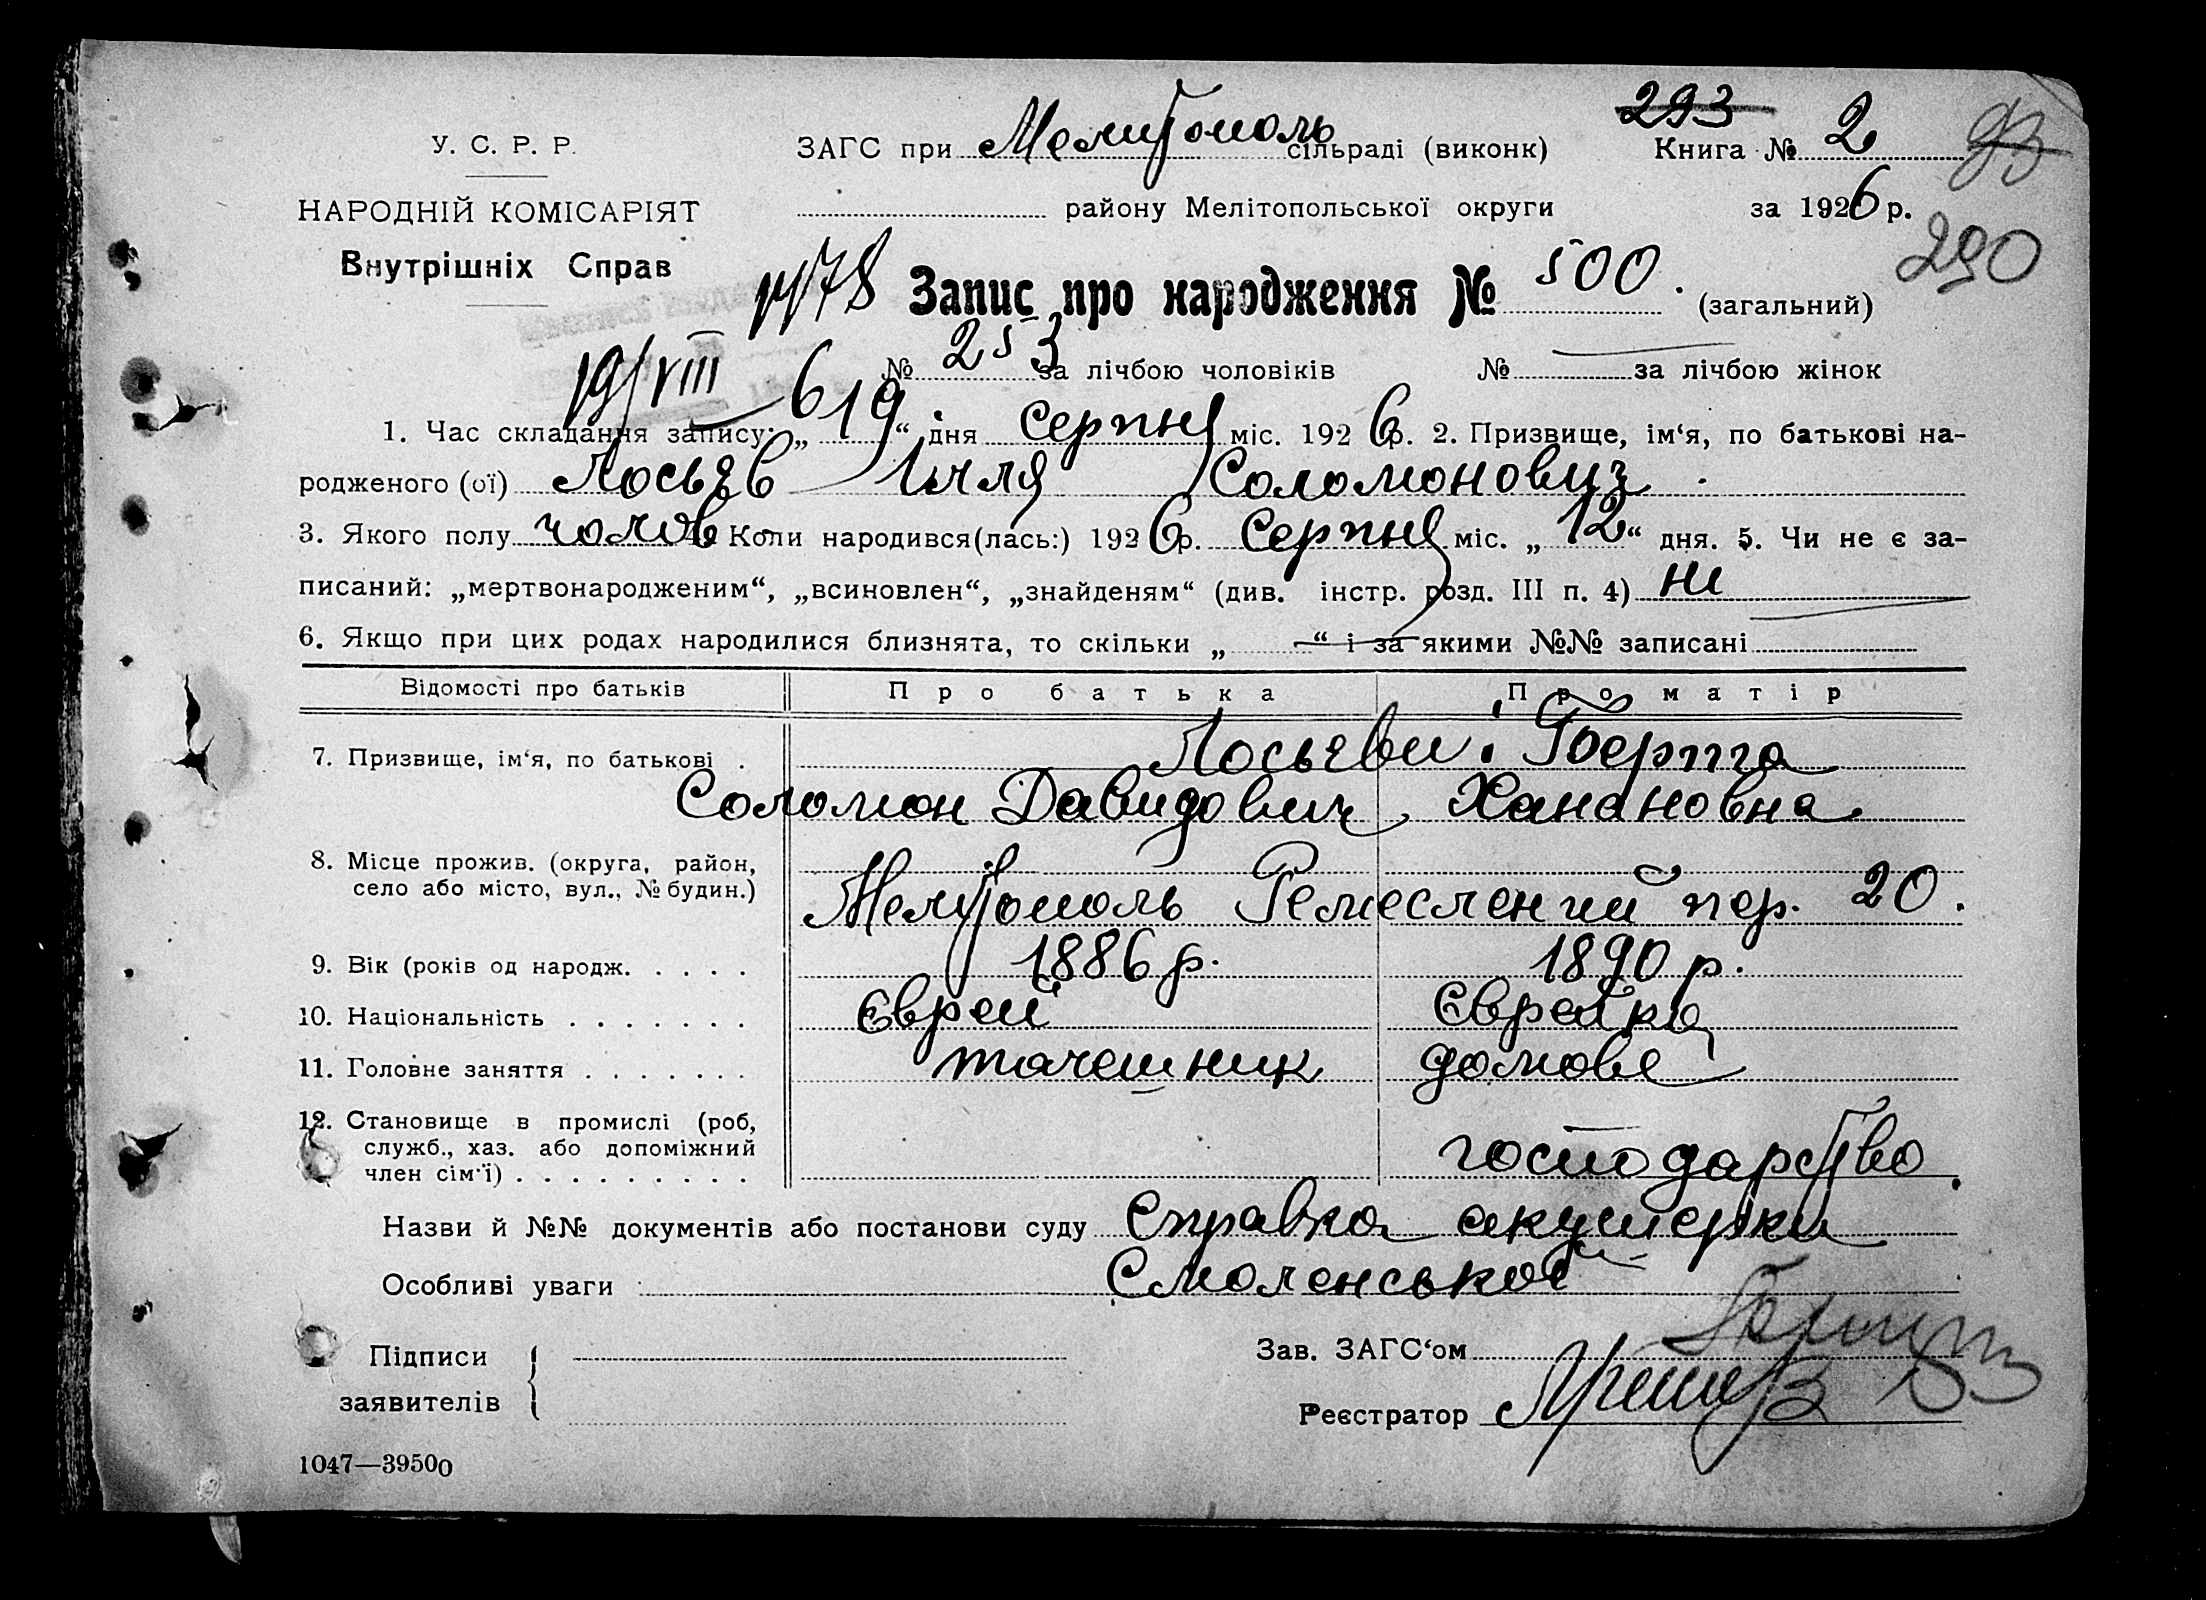 293
У. С. Р. Р. ЗАГС при Мелитополь сільраді (виконк) Книга № 2 93
НАРОДНІЙ КОМІСАРІЯТ району Мелітопольської округи за 1926 р.
Внутрішніх Справ
290
1478 Запис про народження № 500. (загальний)
19/VIII 6 № 253 за лічбою чоловіків № за лічбою жінок
1. Час складання запису: „19“ дня серпня міс. 1926 р. 2. Призвище, ім‘я, по батькові на-
родженого (ої) Лосьєв Ілля Соломонович.
3. Якого полу чолов 4. Коли народився(лась:) 1926 р. Серпня міс. „12“ дня. 5. Чи не є за-
писаний: „мертвонародженим“, „всиновлен“, „знайденям“ (див. інстр. розд. III п. 4) ні
6. Якщо при цих родах народилися близнята, то скільки „ “ і за якими №№ записані
Відомості про батьків Про батька Про матір
7. Призвище, ім‘я, по батькові . Лосьєви: Берта
Соломон Давидович, Ханановна
8. Місце прожив. (округа, район,
село або місто, вул., № будин.) Мелитополь Ремеслений пер. 20.
9. Вік (років од народж. . . . . 1886 р. 1890 р.
10. Національність . . . . . . . Єврей Єврейка
11. Головне заняття . . . . . . . тачешник домове
12. Становище в промислі (роб,
служб., хаз. або допоміжний господарство
член сім‘ї) . . . . . . . . .
Назви й №№ документів або постанови суду Справка акушерки
Особливі уваги : Смоленської
Підписи Зав. ЗАГС‘ом
заявителів Реєстратор
1047—39500